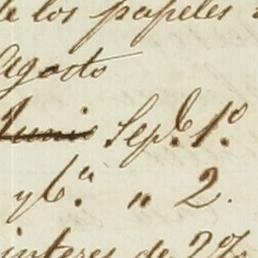 de los papeles
Agosto
Junio Sep.e 1.o
y 6.a " 2.
interes de 2%